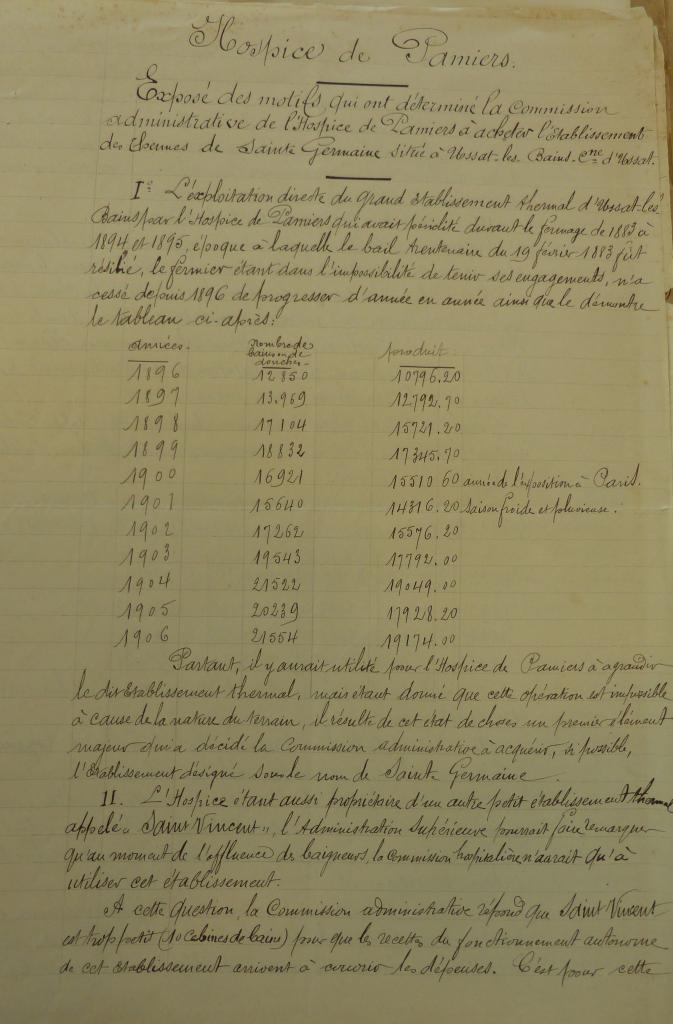 Hospice de Pamiers.
Exposé des motifs qui ont déterminé la Commission
administrative de l'Hospice de Pamiers à acheter l'Etablissement
des Thermes de Sainte Germaine située à Ussat-les-Bains. Cne d'Ussat.
I° L'exploitation directe du grand Etablissement thermal d'Ussat-les
Bains par l'Hospice de Pamiers qui avait périclité durant le fermage de 1883 à
1894 et 1895, époque à laquelle le bail trentenaire du 19 février 1883 fut
résilié, le fermier étant dans l'impossibilité de tenir ses engagements, n'a
cessé depuis 1896 de progresser d'année en année ainsi que le démontre
le tableau ci-après:
années. Nombre de bains ou de douches. produit.
1896 12850 10796.20
1897 13.969 12792.70
1898 17104 15721.20
1899 18832 17345.70
1900 16921 15510 60 année de l'exposition à Paris.
1901 15640 14316.20 saison froide et pluvieuse.
1902 17262 15576.20
1903 19543 17792.00
1904 21522 19049.00
1905 20239 17928.20
1906 21554 19174.00
Partant, il y aurait utilité pour l'Hospice de Pamiers à agrandir
le dit Etablissement thermal, mais étant donné que cette opération est impossible
à cause de la nature du terrain, il résulte de cet état de choses un premier élément
majeur qui a décidé la Commission administrative à acquérir, si possible,
l'Etablissement désigné sous le nom de Sainte Germaine.
II. L'Hospice étant aussi propriétaire d'un autre petit établissement thermal
appelé "Saint Vincent", l'Administration Supérieure pourrait faire remarquer
qu'au moment de l'affluence des baigneurs, la Commission hospitalière n'aurait qu'à
utiliser cet établissement.
A cette question, la Commission administrative répond que Saint Vincent
est trop petit (10 Cabines de bains) pour que les recettes du fonctionnement autonome
de cet Etablissement arrivent à couvrir les dépenses. C'est pour cette